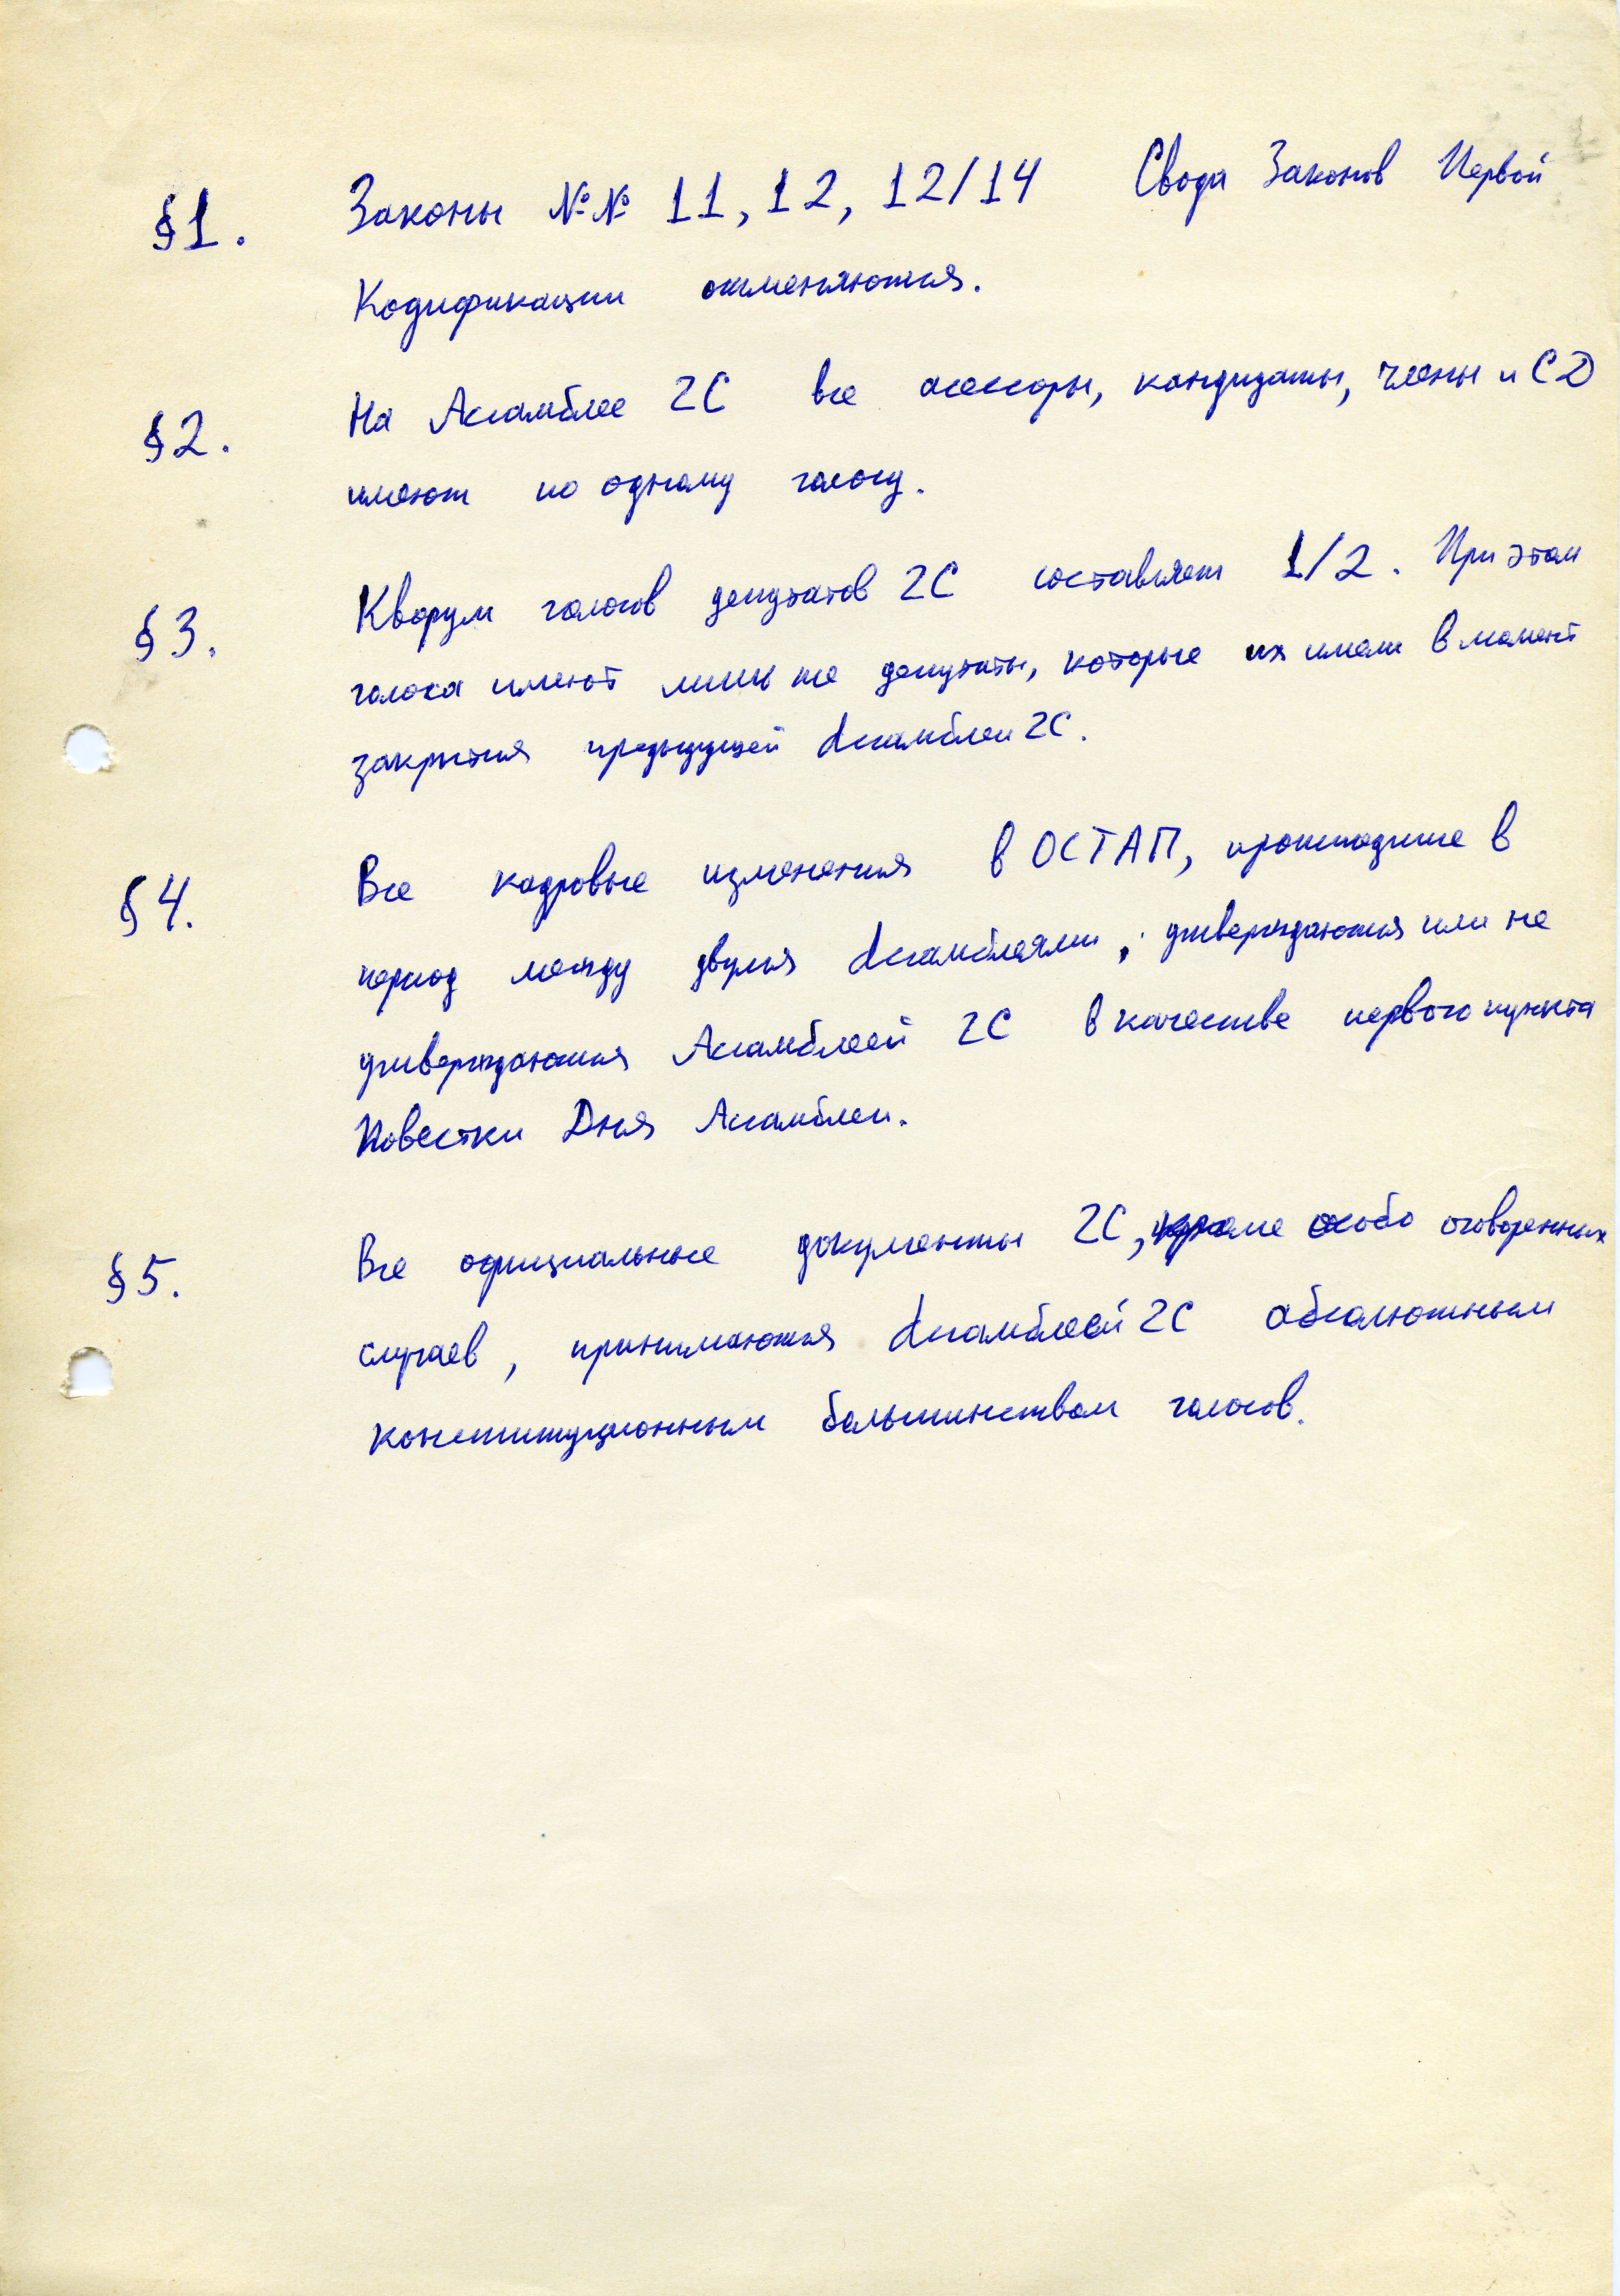 §1. Законы №№ 11, 12, 12/14 Свода Законов Первой
Кодификации отменяются.
§2. На Ассамблее 2С все асессоры, кандидаты, члены и СД
имеют по одному голосу.
§3. Кворум голосов депутатов 2С составляет 1/2. При этом
голоса имеют лишь те депутаты, которые их имели в момент
закрытия предыдущей Ассамблеи 2С.
§4. Все кадровые изменения в ОСТАП, прошедшие в
период между двумя Ассамблеями, утверждаются или не
утверждаются Ассамблеей 2С в качестве первого пункта
Повестки Дня Ассамблеи.
§5. Все официальные документы 2С, кроме особо оговоренных
случаев, принимаются Ассамблеей 2С абсолютным
конституционным большинством голосов.